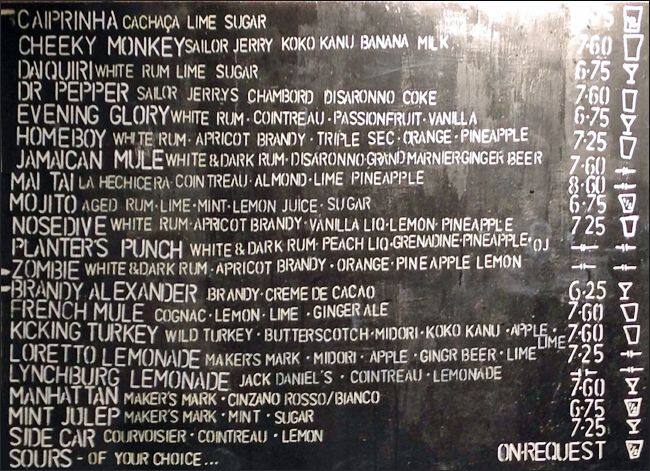 CAIPRINHA CACHAÇA LIME SUGAR
CHEEKY MONKEY SAILOR JERRY KOKO KANU BANANA MILK 7·60
DAIQUIRI WHITE RUM LIME SUGAR 6·75
DR PEPPER SAILOR JERRYS CHAMBORD DISARONNO COKE 7·60
EVENING GLORY WHITE RUM · COINTREAU · PASSIONFRUIT · VANILLA 6·75
HOMEBOY WHITE RUM · APRICOT BRANDY · TRIPLE SEC · ORANGE · PINEAPPLE 7·25
JAMAICAN MULE WHITE & DARK RUM · DISARONNO GRAND MARNIER GINGER BEER 7·60
MAI TAI LA HECHICERA COINTREAU · ALMOND · LIME PINEAPPLE 8·60
MOJITO AGED RUM · LIME · MINT · LEMON JUICE · SUGAR 6·75
NOSEDIVE WHITE RUM · APRICOT BRANDY · VANILLA LIQ · LEMON · PINEAPPLE 7·25
PLANTER'S PUNCH WHITE & DARK RUM · PEACH LIQ · GRENADINE · PINEAPPLE · OJ
ZOMBIE WHITE & DARK RUM · APRICOT BRANDY · ORANGE · PINEAPPLE LEMON
BRANDY ALEXANDER BRANDY · CREME DE CACAO 6·25
FRENCH MULE COGNAC · LEMON · LIME · GINGER ALE 7·60
KICKING TURKEY WILD TURKEY · BUTTERSCOTCH · MIDORI · KOKO KANU · APPLE · LIME 7·60
LORETTO LEMONADE MAKER'S MARK · MIDORI · APPLE · GINGR BEER · LIME 7·25
LYNCHBURG LEMONADE JACK DANIEL'S · COINTREAU · LEMONADE
MANHATTAN MAKER'S MARK · CINZANO ROSSO/BIANCO 7·60
MINT JULEP MAKER'S MARK · MINT · SUGAR 6·75
SIDE CAR COURVOISIER · COINTREAU · LEMON 7·25
SOURS - OF YOUR CHOICE... ON·REQUEST